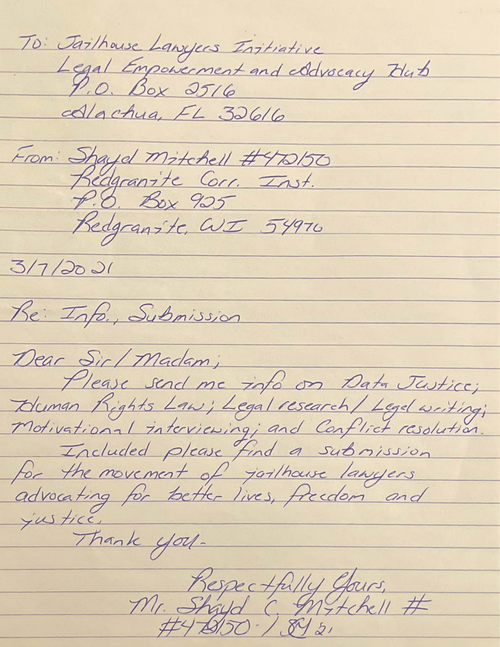 To: Jailhouse Lawyers Initiative
Legal Empowerment and Advocacy Hub
P.O. Box 2516
Alachua, FL 32616
From: Shayd Mitchell #472150
Redgranite Corr. Inst.
P.O. Box 925
Redgranite, WI 54970
3/7/2021
Re: Info., Submission
Dear Sir/Madam;
Please send me info on Data Justice;
Human Rights Law; Legal research/Legal writing;
Motivational interviewing; and Conflict resolution.
Included please find a submission
for the movement of jailhouse lawyers
advocating for better lives, freedom and
justice.
Thank you-
Respectfully Yours,
Mr. Shayd C. Mitchell #
#472150